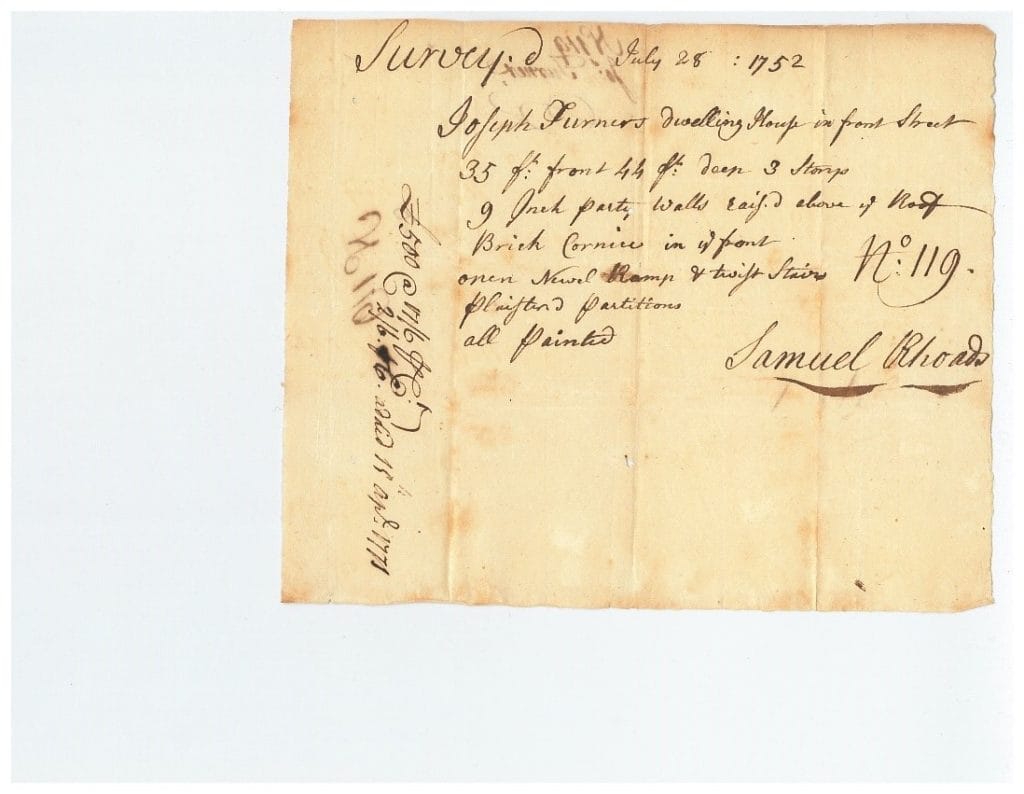 Survey:d July 28 : 1752
Joseph Turners dwelling House in front Street
35 ft: front 44 ft: deep 3 Storys
9 Inch party Walls rais:d above ye Roof
Brick Cornice in ye front
open Newel Ramp & twist Stairs
No: 119.
Plaister'd Partitions
all Painted
Samuel Rhoads
£500 @ 17/6 P Ct
1771